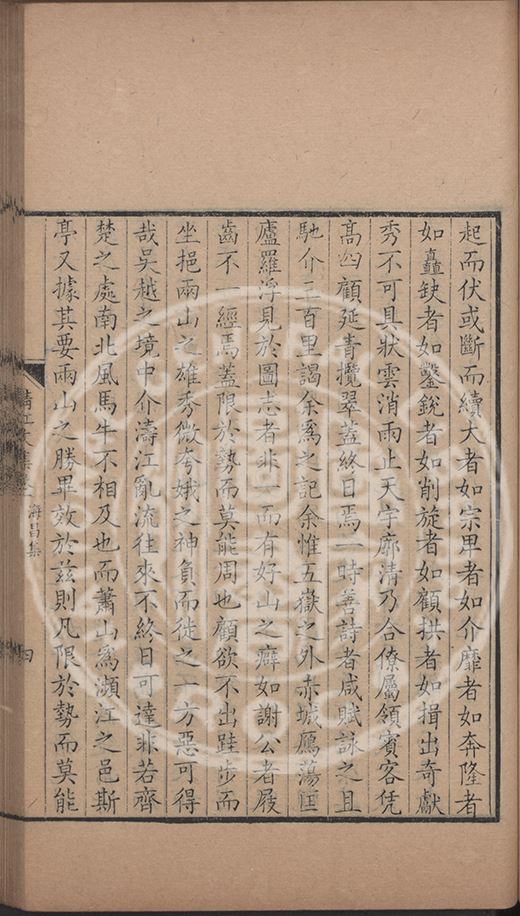 起而伏或斷而續大者如宗卑者如介靡者如奔隆者
如蠧缺者如鑿銳者如削旋者如顧拱者如揖出奇獻
秀不可具狀雲消雨止天宇廓清乃合僚屬領賓客凭
高四顧延青攬翠蓋終日焉一時善詩者咸賦詠之且
馳介三百里謁余爲之記余惟五嶽之外赤城鴈蕩匡
廬羅浮見於圖志者非一而有好山之癖如謝公者屐
齒不一經焉蓋限於勢而莫能周也顧欲不出跬步而
坐挹兩山之雄秀微夸娥之神負而徙之一方惡可得
哉吳越之境中介濤江亂流往來不終日可達非若齊
楚之處南北風馬牛不相及也而蕭山爲瀕江之邑斯
亭又據其要兩山之勝畢效於兹則凡限於勢而莫能
清江文集 海昌集 四